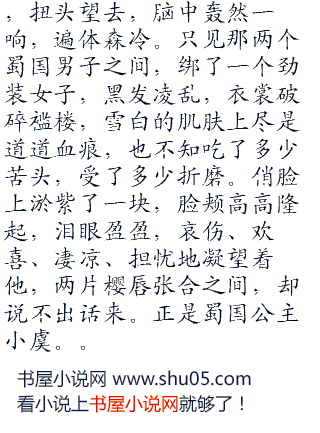 ，扭头望去，脑中轰然一
响，遍体森冷。只见那两个
蜀国男子之间，绑了一个劲
装女子，黑发凌乱，衣裳破
碎褴楼，雪白的肌肤上尽是
道道血痕，也不知吃了多少
苦头，受了多少折磨。俏脸
上淤紫了一块，脸颊高高隆
起，泪眼盈盈，哀伤、欢
喜、凄凉、担忧地凝望着
他，两片樱唇张合之间，却
说不出话来。正是蜀国公主
小虞。。
书屋小说网 www.shu05.com
看小说上书屋小说网就够了！